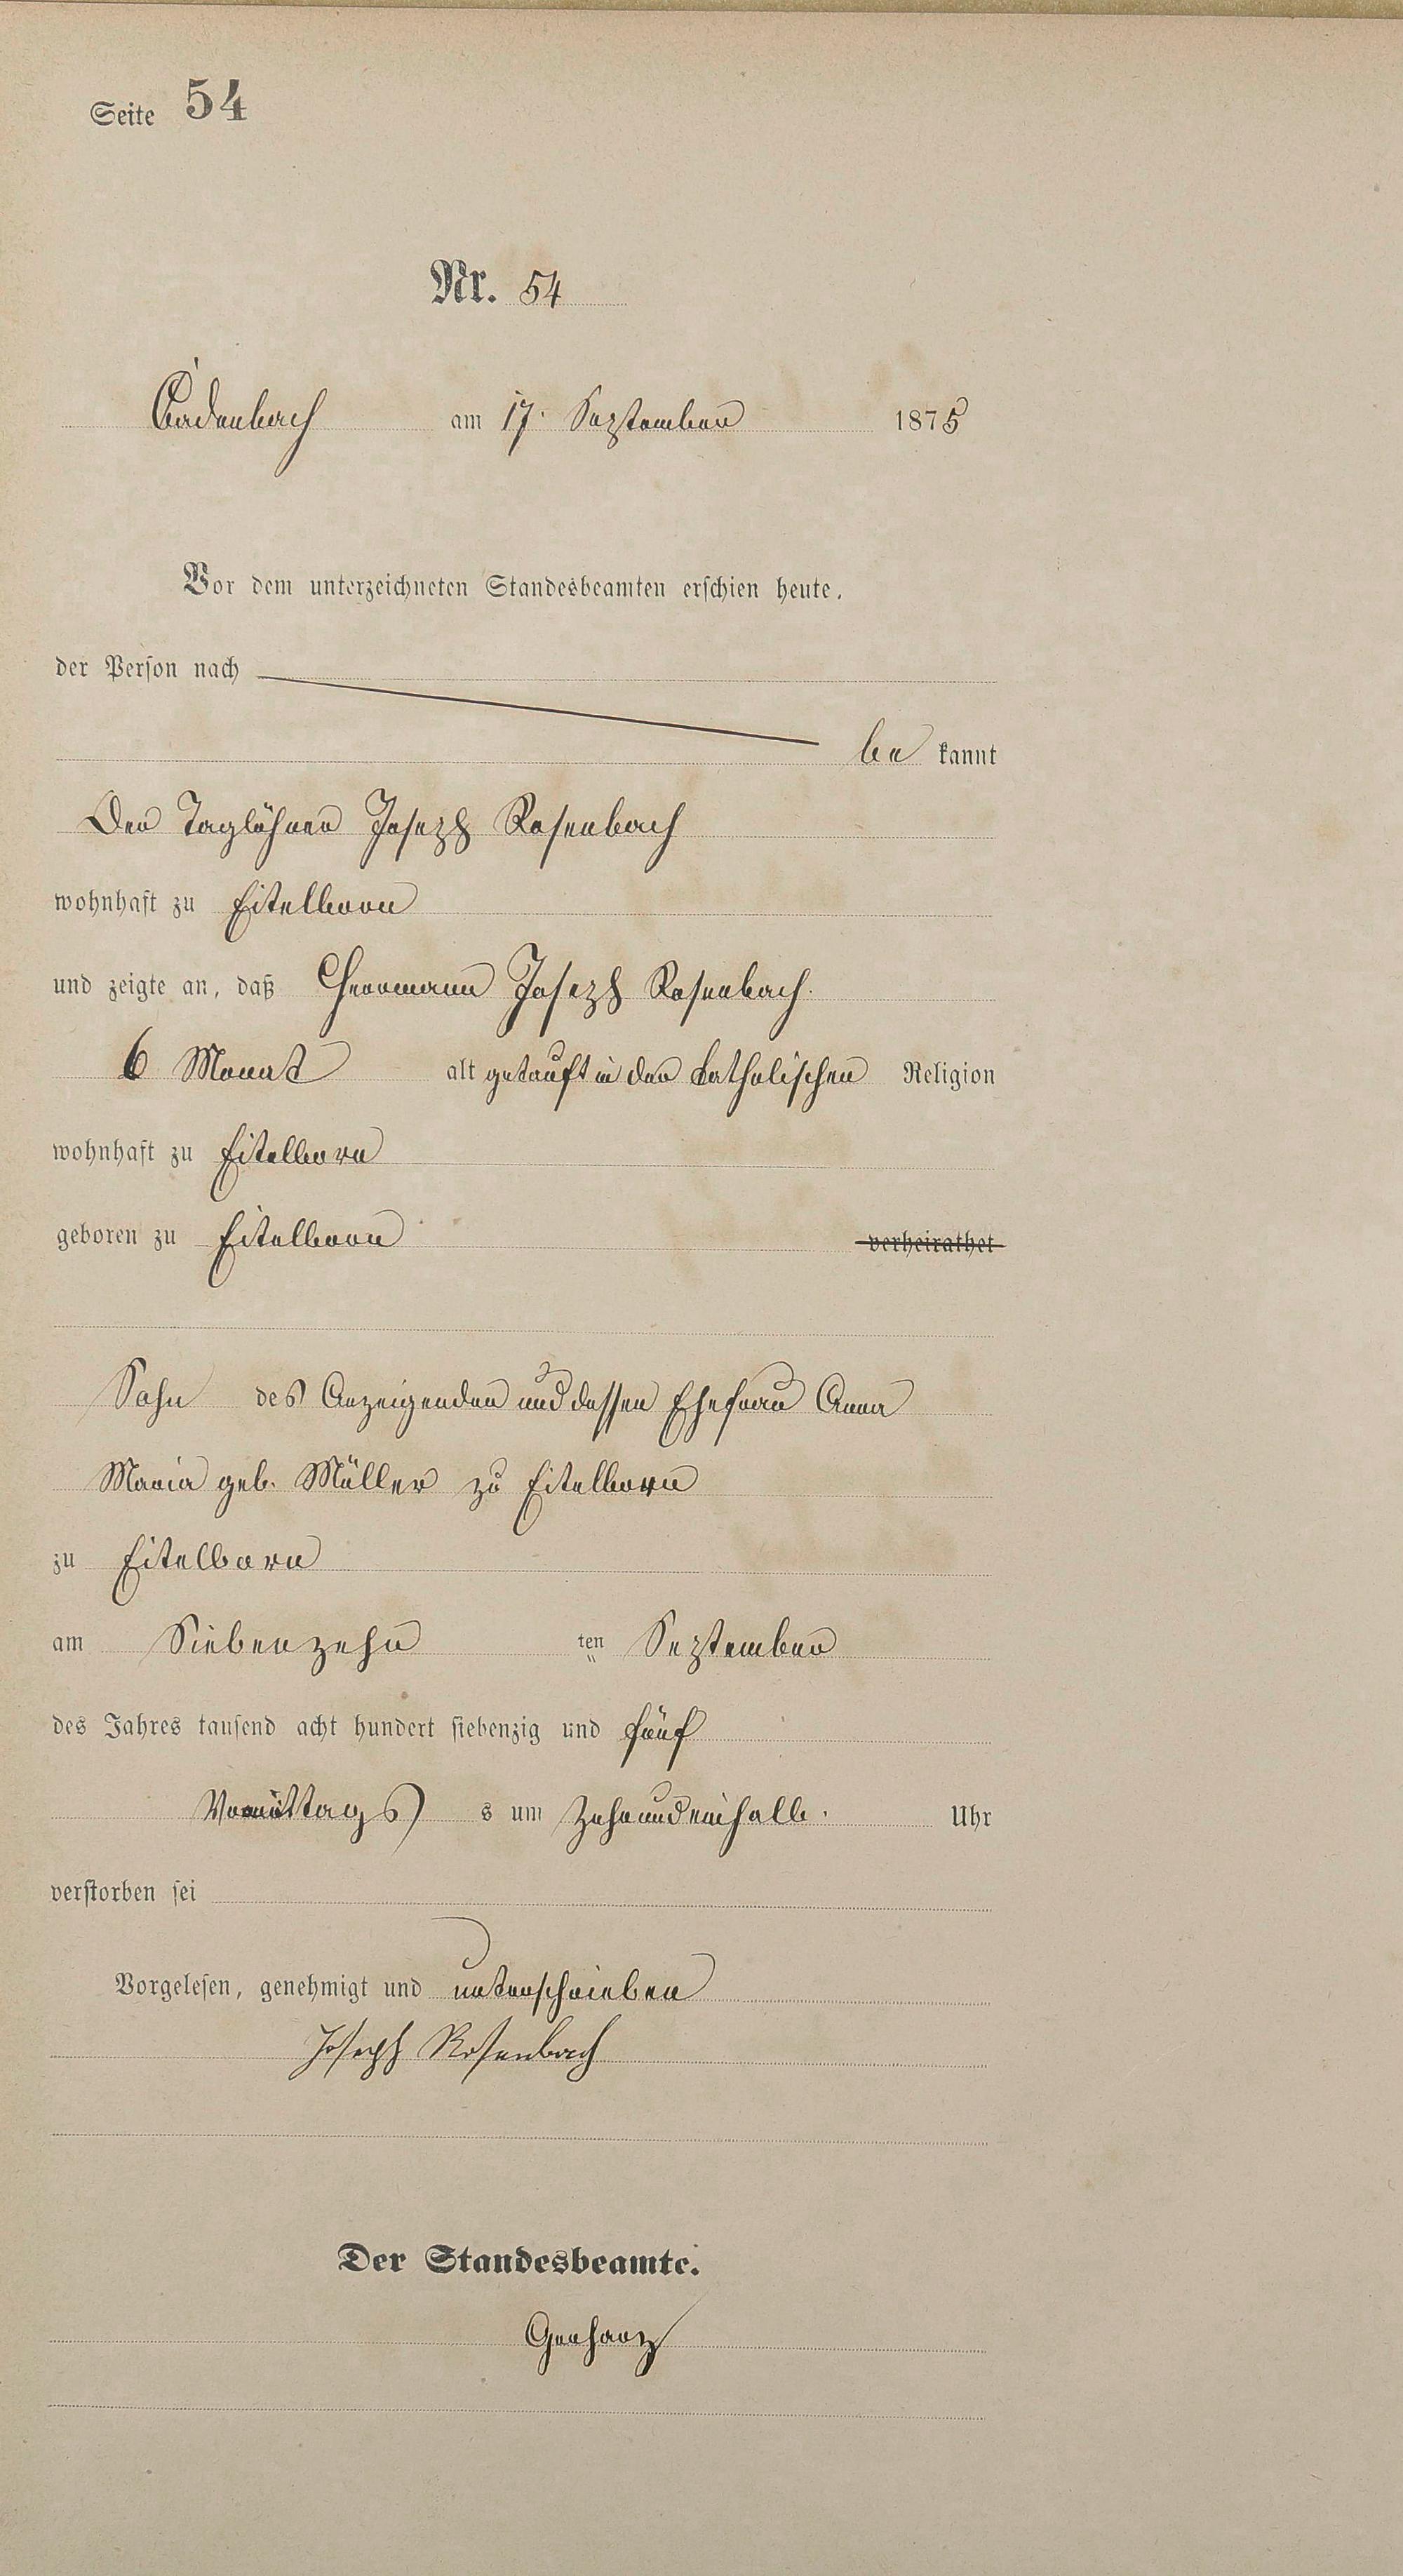 Seite 54
Nr. 54
Cadenbach am 17. September 1875
Vor dem unterzeichneten Standesbeamten erschien heute,
der Person nach
be kannt
Der Taglöhner Joseph Rosenbach
wohnhaft zu Eitelborn
und zeigte an, daß Herrmann Joseph Rosenbach.
6 Monat alt getauft in der katholischen Religion
wohnhaft zu Eitelborn
geboren zu Eitelborn verheirathet
Sohn des Anzeigenden und dessen Ehefrau Anna
Maria geb. Müller zu Eitelborn
zu Eitelborn
am Siebenzehn ten September
des Jahres tausend acht hundert siebenzig und fünf
Vormittags s um Zehnundeinhalb. Uhr
verstorben sei
Vorgelesen, genehmigt und unterschrieben
Joseph Rosenbach
Der Standesbeamte.
Gerharz